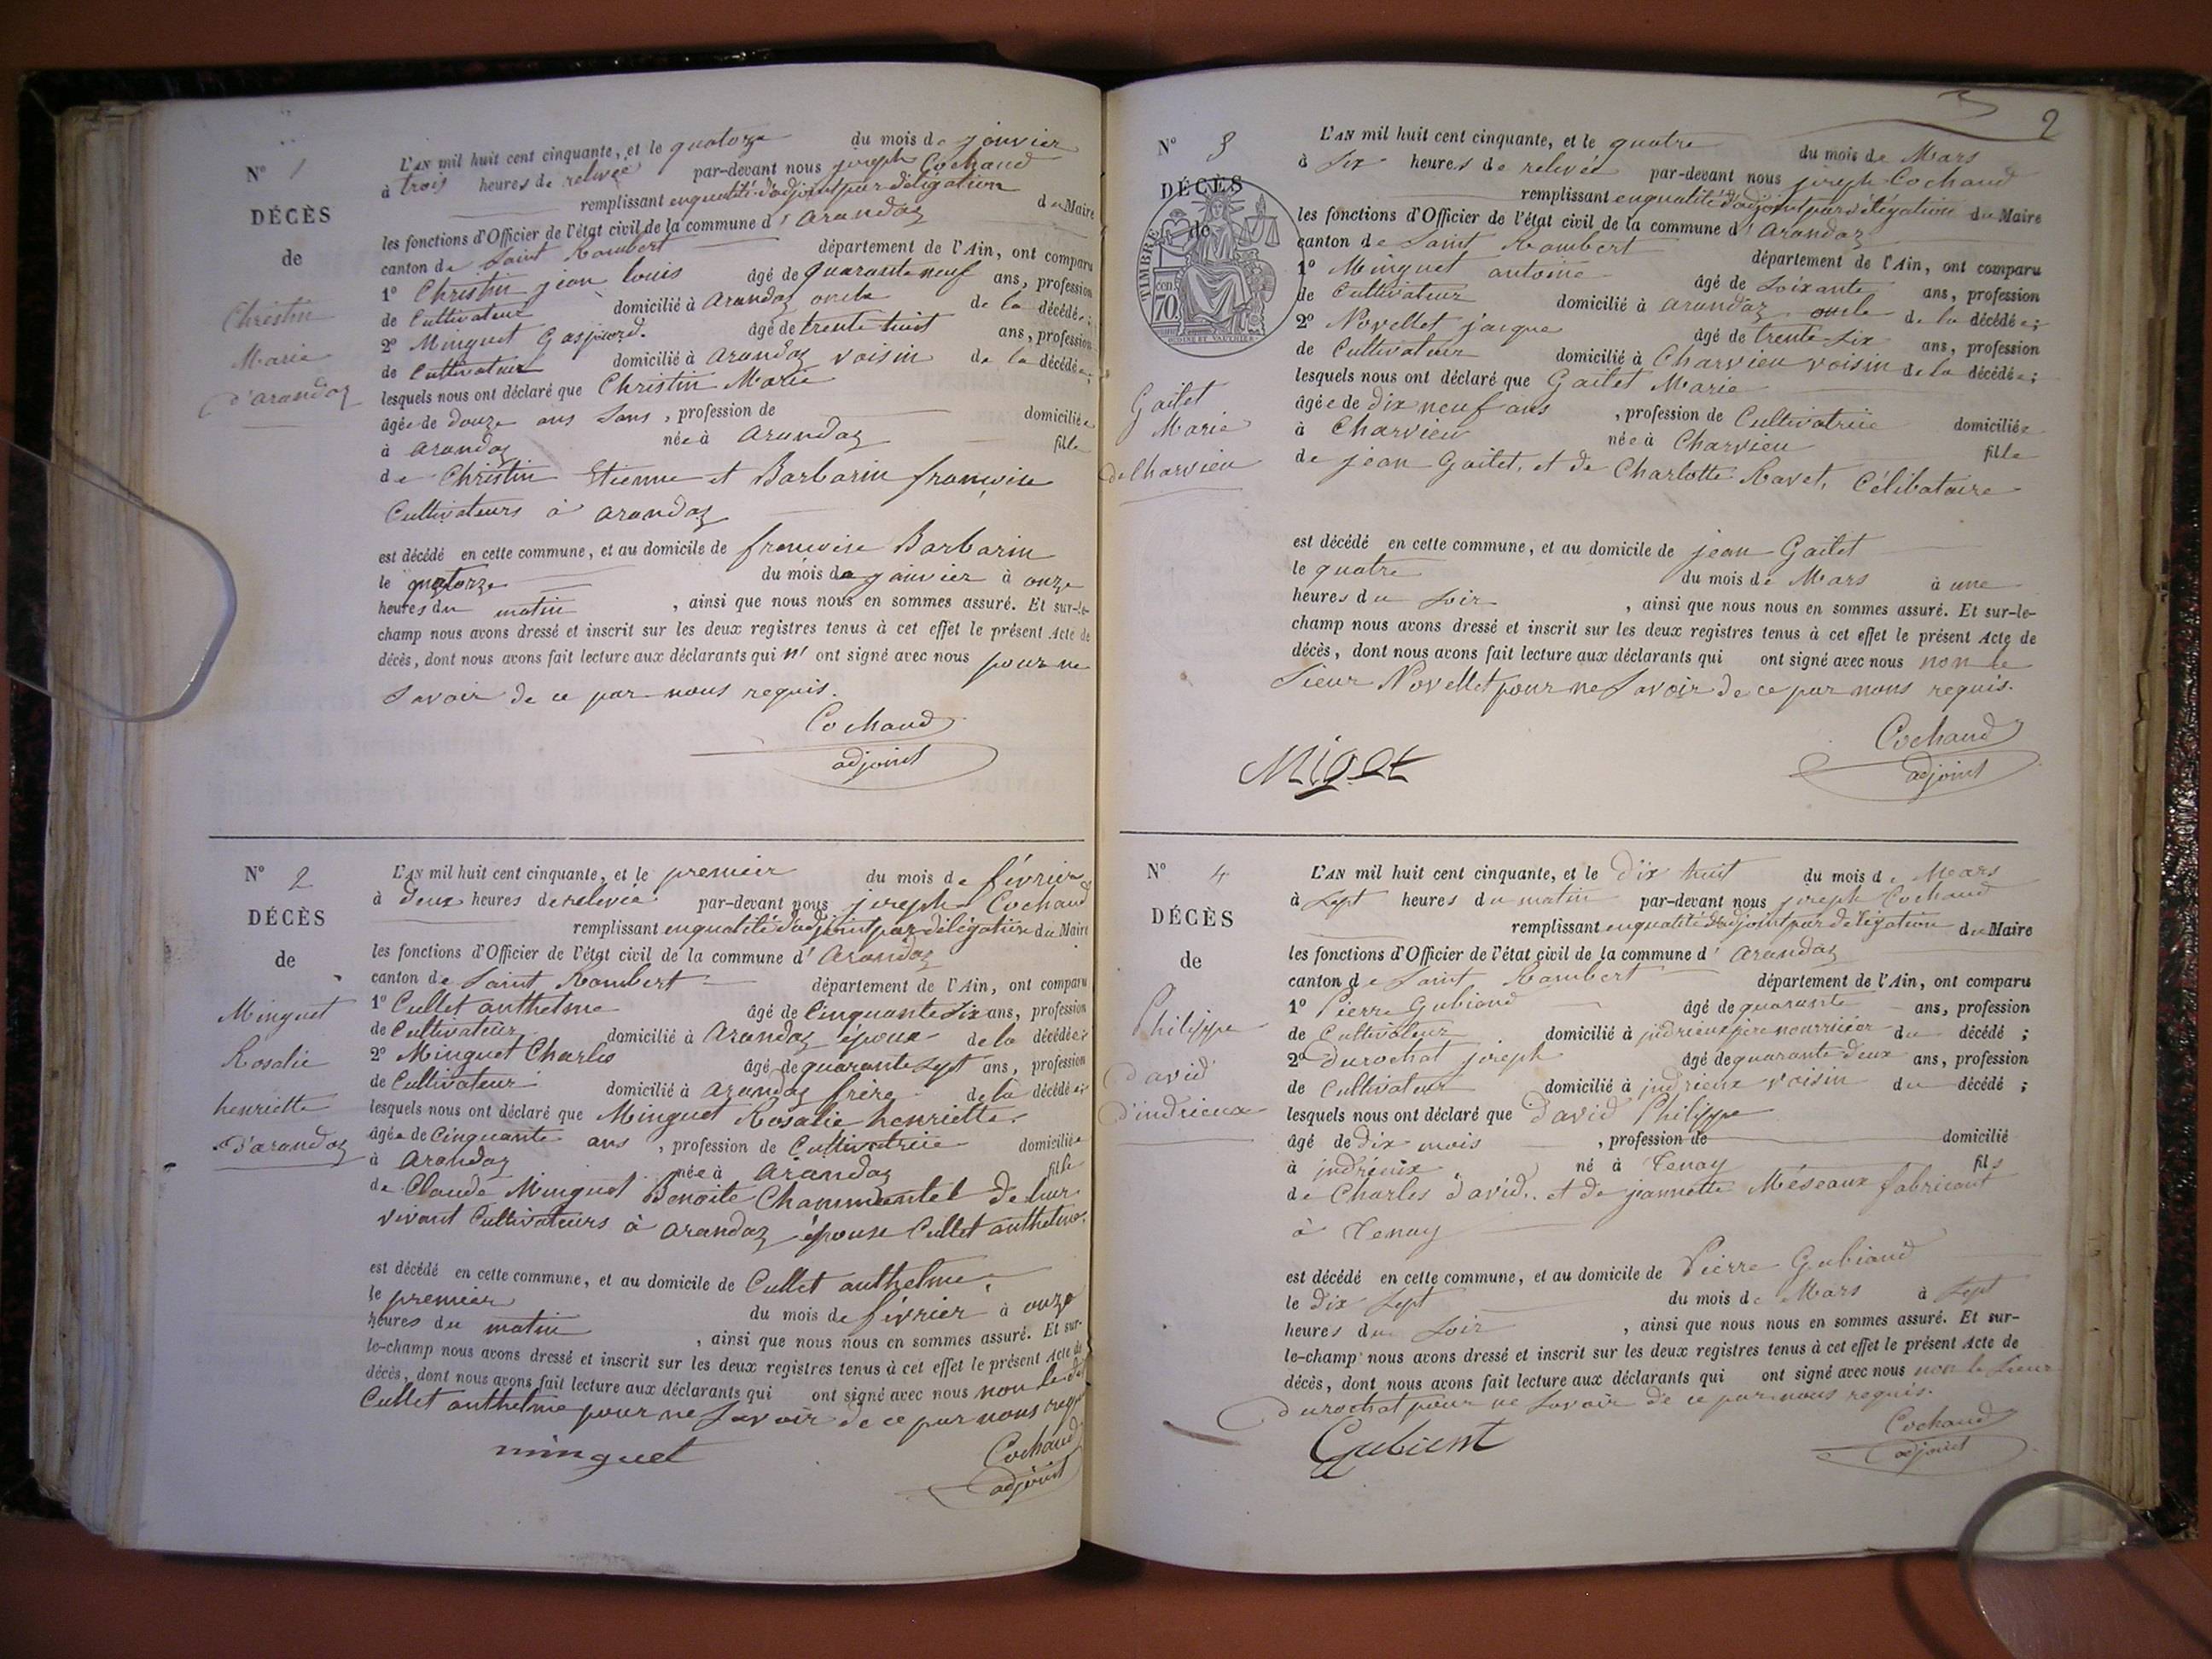 N° 1
DÉCÈS
de
Christin
Marie
d'arandaz
L'AN mil huit cent cinquante, et le quatorze du mois de janvier
à trois heures de relevée par-devant nous joseph Cochaud
remplissant en qualité d'adjoint par délégation du Maire
les fonctions d'Officier de l'état civil de la commune d'arandaz
canton de Saint Rambert département de l'Ain, ont comparu
1° Christin jean louis âgé de quarante neuf ans, profession
de Cultivateur domicilié à arandaz oncle de la décédée;
2° Minguet Gaspard. âgé de trente huit ans, profession
de Cultivateur domicilié à arandaz voisin de la décédée;
lesquels nous ont déclaré que Christin Marie
âgée de douze ans Sans, profession de domiciliée
à arandaz née à arandaz fille
de Christin Etienne et Barbarin françoise
Cultivateurs à arandaz
est décédé en cette commune, et au domicile de françoise Barbarin
le quatorze du mois de janvier à onze
heures du matin, ainsi que nous nous en sommes assuré. Et sur-le-
champ nous avons dressé et inscrit sur les deux registres tenus à cet effet le présent Acte de
décès, dont nous avons fait lecture aux déclarants qui n'ont signé avec nous pour ne
Savoir de ce par nous requis.
Cochaud
adjoint
N° 2
DÉCÈS
de
Minguet
Rosalie
henriette
d'arandaz
L'AN mil huit cent cinquante, et le premier du mois de février
à deux heures de relevée par-devant nous joseph Cochaud
remplissant en qualité d'adjoint par délégation du Maire
les fonctions d'Officier de l'état civil de la commune d'Arandaz
canton de Saint Rambert département de l'Ain, ont comparu
1° Cullet anthelme âgé de Cinquante Six ans, profession
de Cultivateur domicilié à Arandaz époux de la décédée;
2° Minguet Charles âgé de quarante Sept ans, profession
de Cultivateur domicilié à arandaz frère de la décédée;
lesquels nous ont déclaré que Minguet Rosalie henriette
âgée de Cinquante ans, profession de Cultivatrice domiciliée
à Arandaz née à Arandaz fille
de Claude Minguet Benoite Chammantel de leur
vivant Cultivateurs à arandaz épouse Cullet anthelme.
est décédé en cette commune, et au domicile de Cullet anthelme.
le premier du mois de février à onze
heures du matin, ainsi que nous nous en sommes assuré. Et sur-
le-champ nous avons dressé et inscrit sur les deux registres tenus à cet effet le présent Acte de
décès, dont nous avons fait lecture aux déclarants qui ont signé avec nous non le dit
Cullet anthelme pour ne Savoir de ce par nous requis
minguet
Cochaud
adjoint
2
N° 3
DÉCÈS
de
TIMBRE
70
Gaillet
Marie
de Charvieu
L'AN mil huit cent cinquante, et le quatre du mois de Mars
à Six heures de relevée par-devant nous joseph Cochaud
remplissant en qualité d'adjoint par délégation du Maire
les fonctions d'Officier de l'état civil de la commune d'Arandaz
canton de Saint Rambert département de l'Ain, ont comparu
1° Minguet antoine âgé de Soixante ans, profession
de Cultivateur domicilié à arandaz oncle de la décédée;
2° Novellet jacque âgé de trente Six ans, profession
de Cultivateur domicilié à Charvieu voisin de la décédée;
lesquels nous ont déclaré que Gaillet Marie
âgée de dix neuf ans, profession de Cultivatrice domiciliée
à Charvieu née à Charvieu fille
de jean Gaillet, et de Charlotte Ravet, Célibataire
est décédé en cette commune, et au domicile de jean Gaillet
le quatre du mois de Mars à une
heures du Soir, ainsi que nous nous en sommes assuré. Et sur-le-
champ nous avons dressé et inscrit sur les deux registres tenus à cet effet le présent Acte de
décès, dont nous avons fait lecture aux déclarants qui ont signé avec nous non le
Sieur Novellet pour ne Savoir de ce par nous requis.
Cochaud
adjoint
N° 4
DÉCÈS
de
Philippe
David
d'indrieux
L'AN mil huit cent cinquante, et le dix huit du mois de Mars
à Sept heures du matin par-devant nous joseph Cochaud
remplissant en qualité d'adjoint par délégation du Maire
les fonctions d'Officier de l'état civil de la commune d'arandaz
canton de Saint Rambert département de l'Ain, ont comparu
1° Pierre Gubiand âgé de quarante ans, profession
de Cultivateur domicilié à indrieux pere nourricier du décédé;
2° Durochat joseph âgé de quarante deux ans, profession
de Cultivateur domicilié à indrieux voisin du décédé;
lesquels nous ont déclaré que David Philippe
âgé de dix mois, profession de domicilié
à indrieux né à Tenay fils
de Charles David, et de jeannette Méseaux fabricant
à Tenay
est décédé en cette commune, et au domicile de Pierre Gubiand
le dix Sept du mois de Mars à Sept
heures du Soir, ainsi que nous nous en sommes assuré. Et sur-
le-champ nous avons dressé et inscrit sur les deux registres tenus à cet effet le présent Acte de
décès, dont nous avons fait lecture aux déclarants qui ont signé avec nous non le Sieur
Durochat pour ne Savoir de ce par nous requis.
Cochaud
adjoint